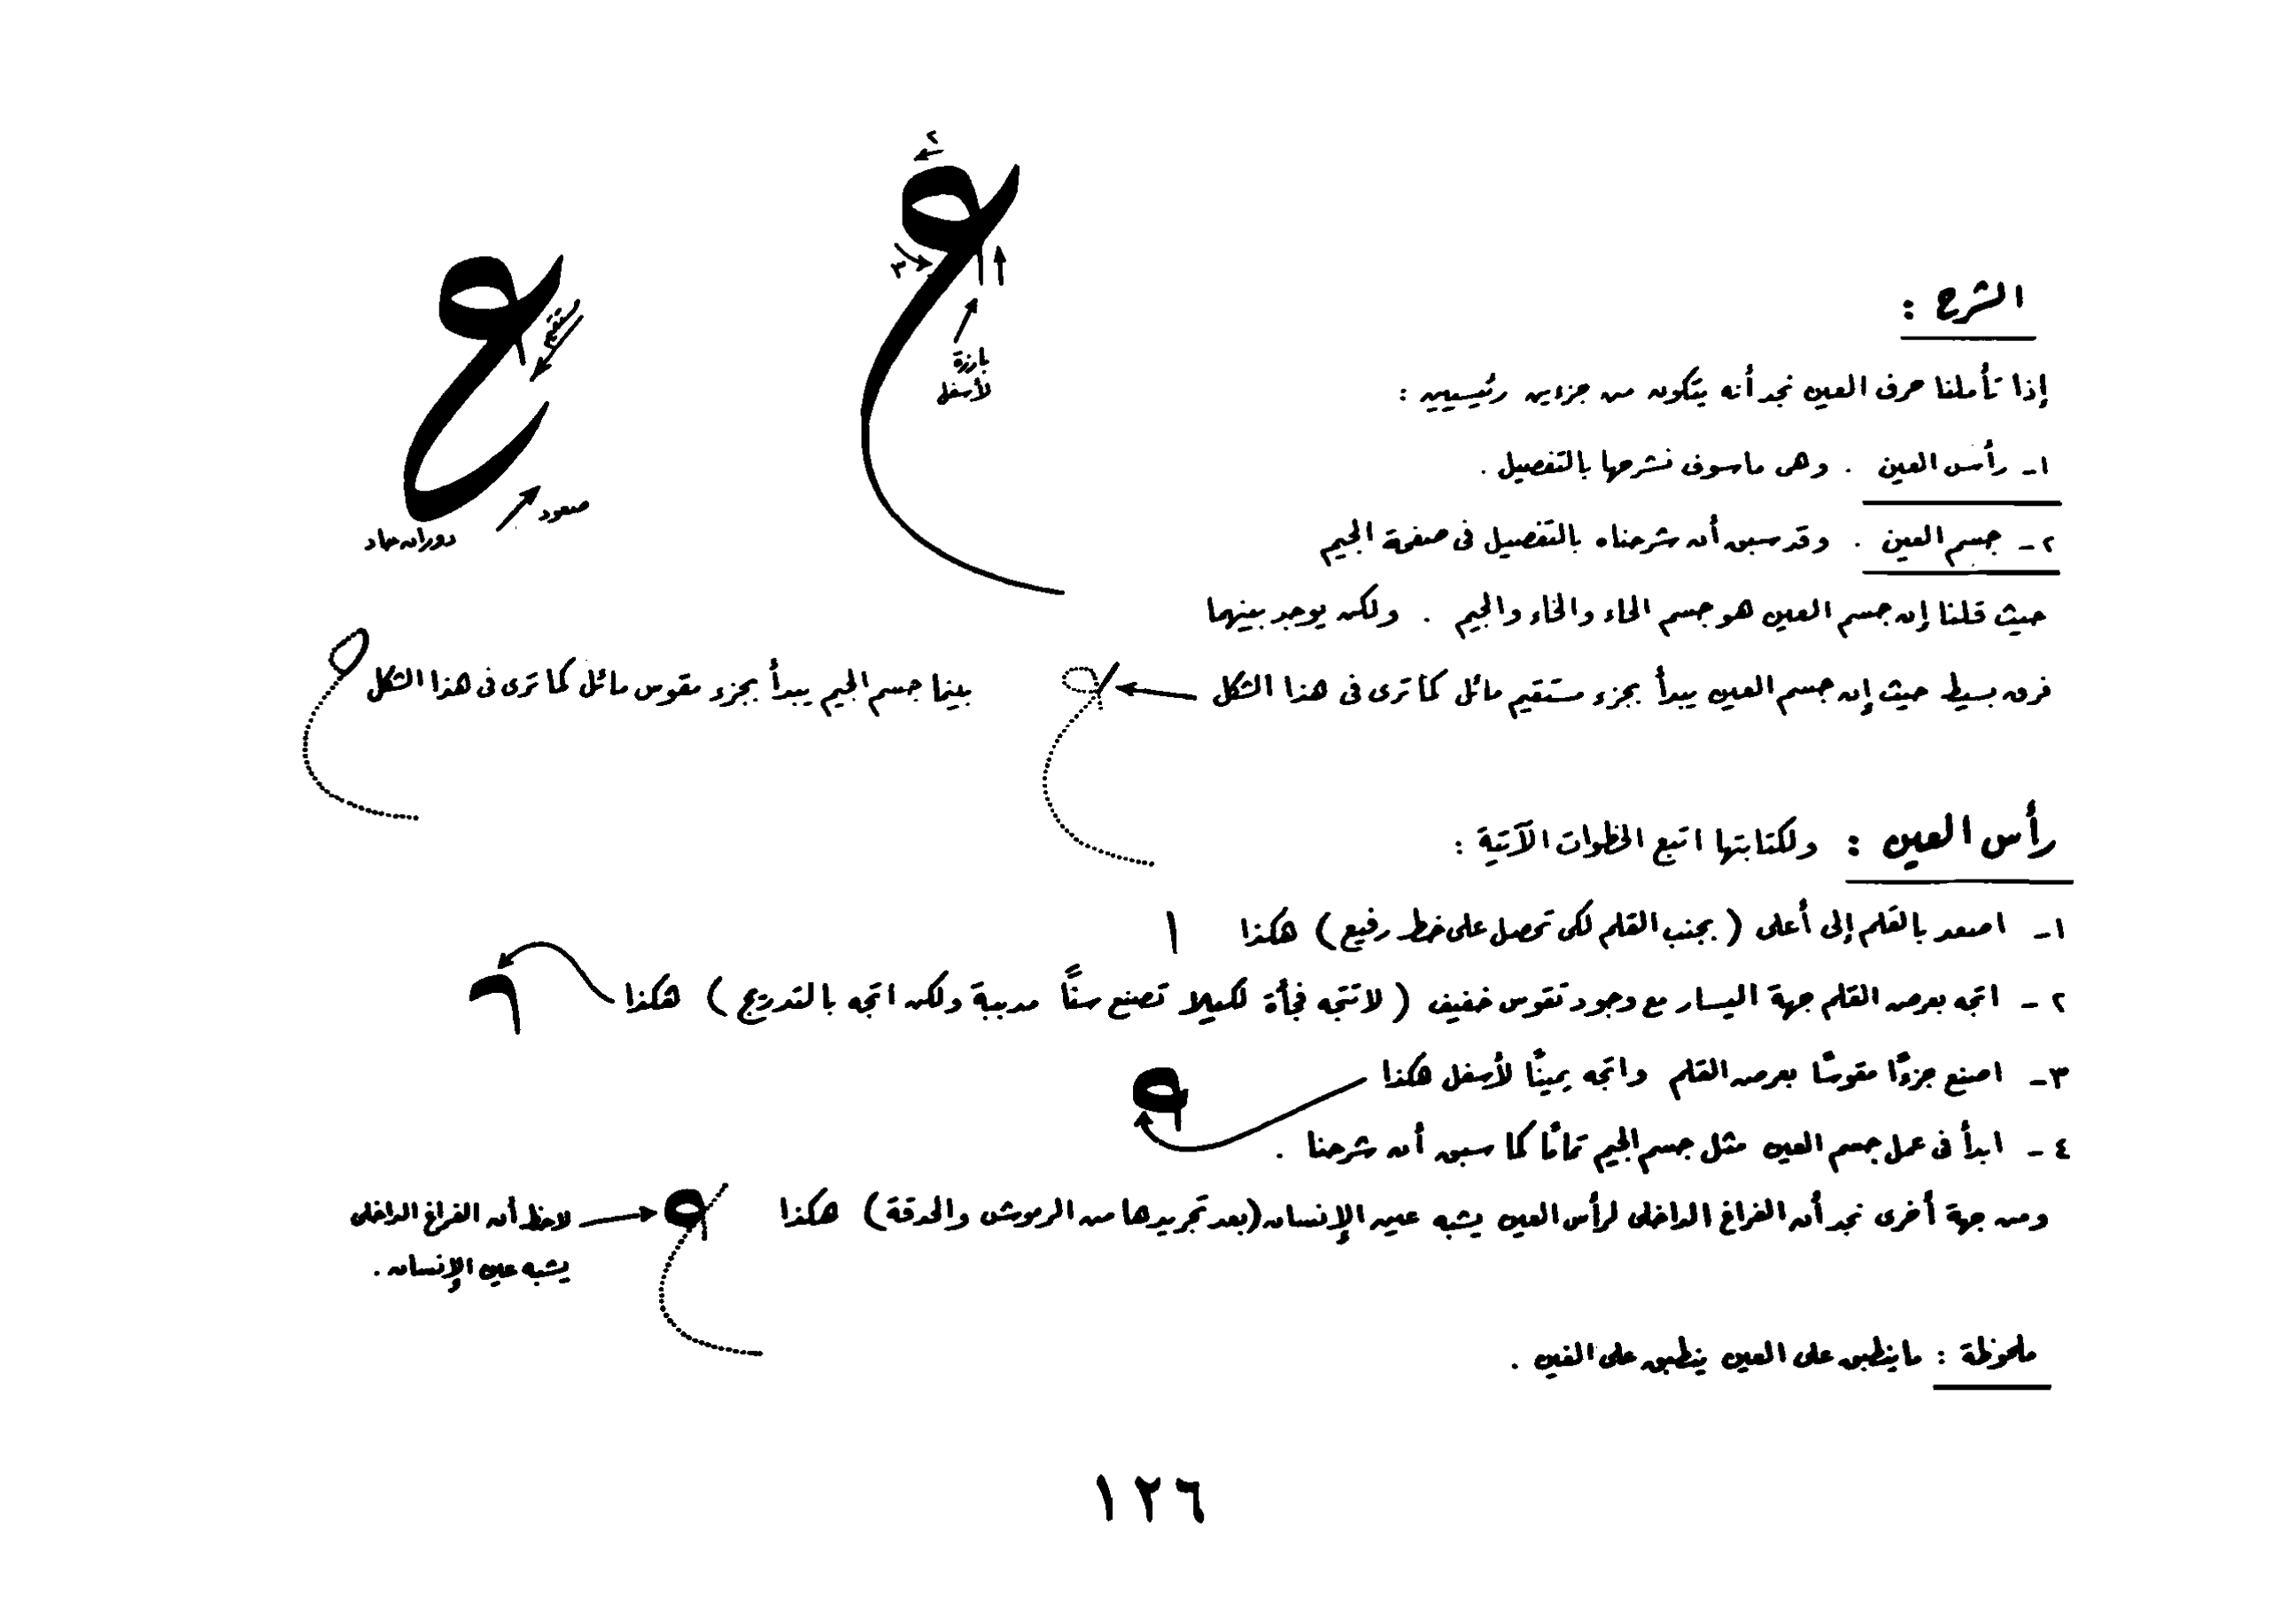 ٢
٣
بارزة
لأسفل
مستقيم
صعود
دوران حاد
الشرح :
إذا تأملنا حرف العين نجد أنه يتكون من جزءين رئيسيين :
١- رأس العين . وهى ما سوف نشرحها بالتفصيل .
٢- جسم العين . وقد سبق أن شرحناه بالتفصيل فى صفحة الجيم
حيث قلنا إن جسم العين هو جسم الحاء والخاء والجيم . ولكن يوجد بينهما
فرق بسيط حيث إن جسم العين يبدأ بجزء مستقيم مائل كما ترى فى هذا الشكل بينما جسم الجيم يبدأ بجزء مقوس مائل كما ترى فى هذا الشكل
رأس العين : ولكتابتها اتبع الخطوات الآتية :
١- اصعد بالقلم إلى أعلى ( بجنب القلم لكى تحصل على خط رفيع ) هكذا
٢- اتجه بعرض القلم جهة اليسار مع وجود تقوس خفيف ( لا تتجه فجأة لكيلا تصنع سنًّا مدببة ولكن اتجه بالتدريج ) هكذا
٣- اصنع جزءًا مقوسًا بعرض القلم واتجه يمينًا لأسفل هكذا
٤- ابدأ فى عمل جسم العين مثل جسم الجيم تمامًا كما سبق أن شرحنا .
ومن جهة أخرى نجد أن الفراغ الداخلى لرأس العين يشبه عين الإنسان (بعد تجريدها من الرموش والحدقة) هكذا
لاحظ أن الفراغ الداخلى
يشبه عين الإنسان .
ملحوظة : ما ينطبق على العين ينطبق على الغين .
١٢٦